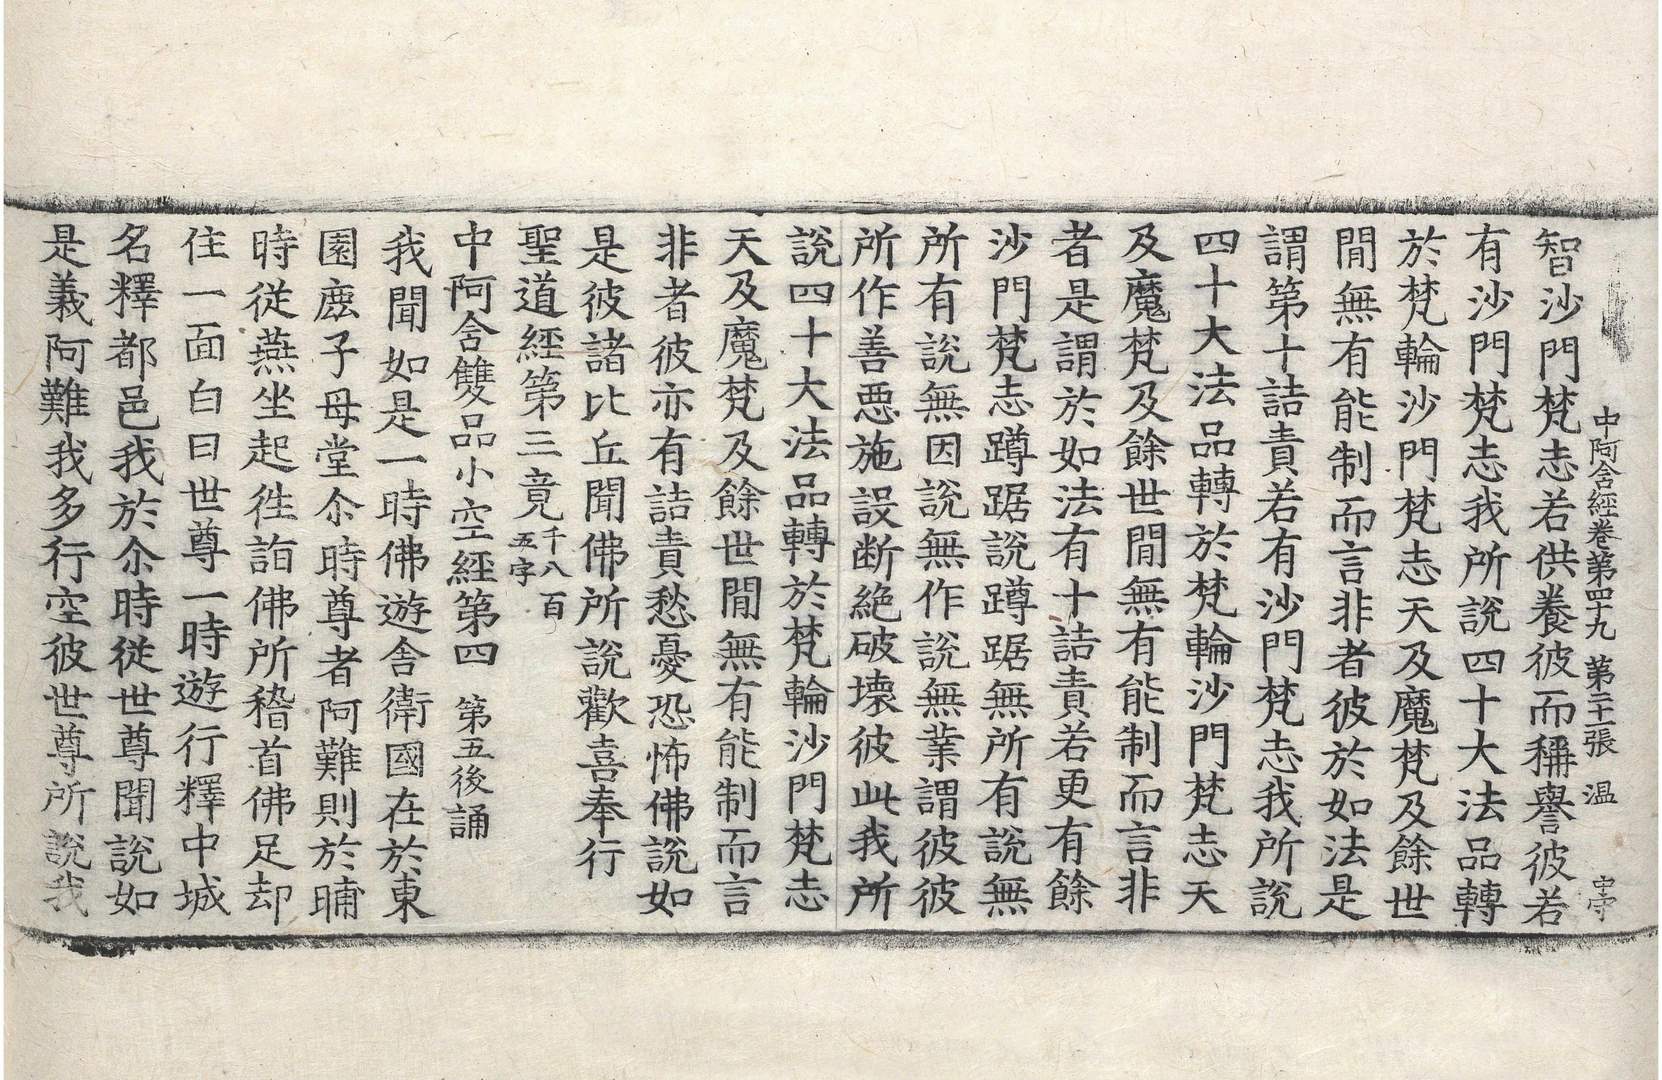 中阿含經卷第四十九 第二十張 温 守
智沙門梵志若供養彼而稱譽彼若
有沙門梵志我所說四十大法品轉
於梵輪沙門梵志天及魔梵及餘世
閒無有能制而言非者彼於如法是
謂第十詰責若有沙門梵志我所說
四十大法品轉於梵輪沙門梵志天
及魔梵及餘世閒無有能制而言非
者是謂於如法有十詰責若更有餘
沙門梵志蹲踞說蹲踞無所有說無
所有說無因說無作說無業謂彼彼
所作善惡施設断絶破壊彼此我所
說四十大法品轉於梵輪沙門梵志
天及魔梵及餘世閒無有能制而言
非者彼亦有詰責愁憂恐怖佛說如
是彼諸比丘聞佛所說歡喜奉行
聖道經第三竟 千八百五字
中阿含雙品小空經第四 第五後誦
我聞如是一時佛遊舍衛國在於東
園鹿子母堂尒時尊者阿難則於晡
時從燕坐起徃詣佛所稽首佛足却
住一面白曰世尊一時遊行釋中城
名釋都邑我於尒時從世尊聞說如
是義阿難我多行空彼世尊所說我